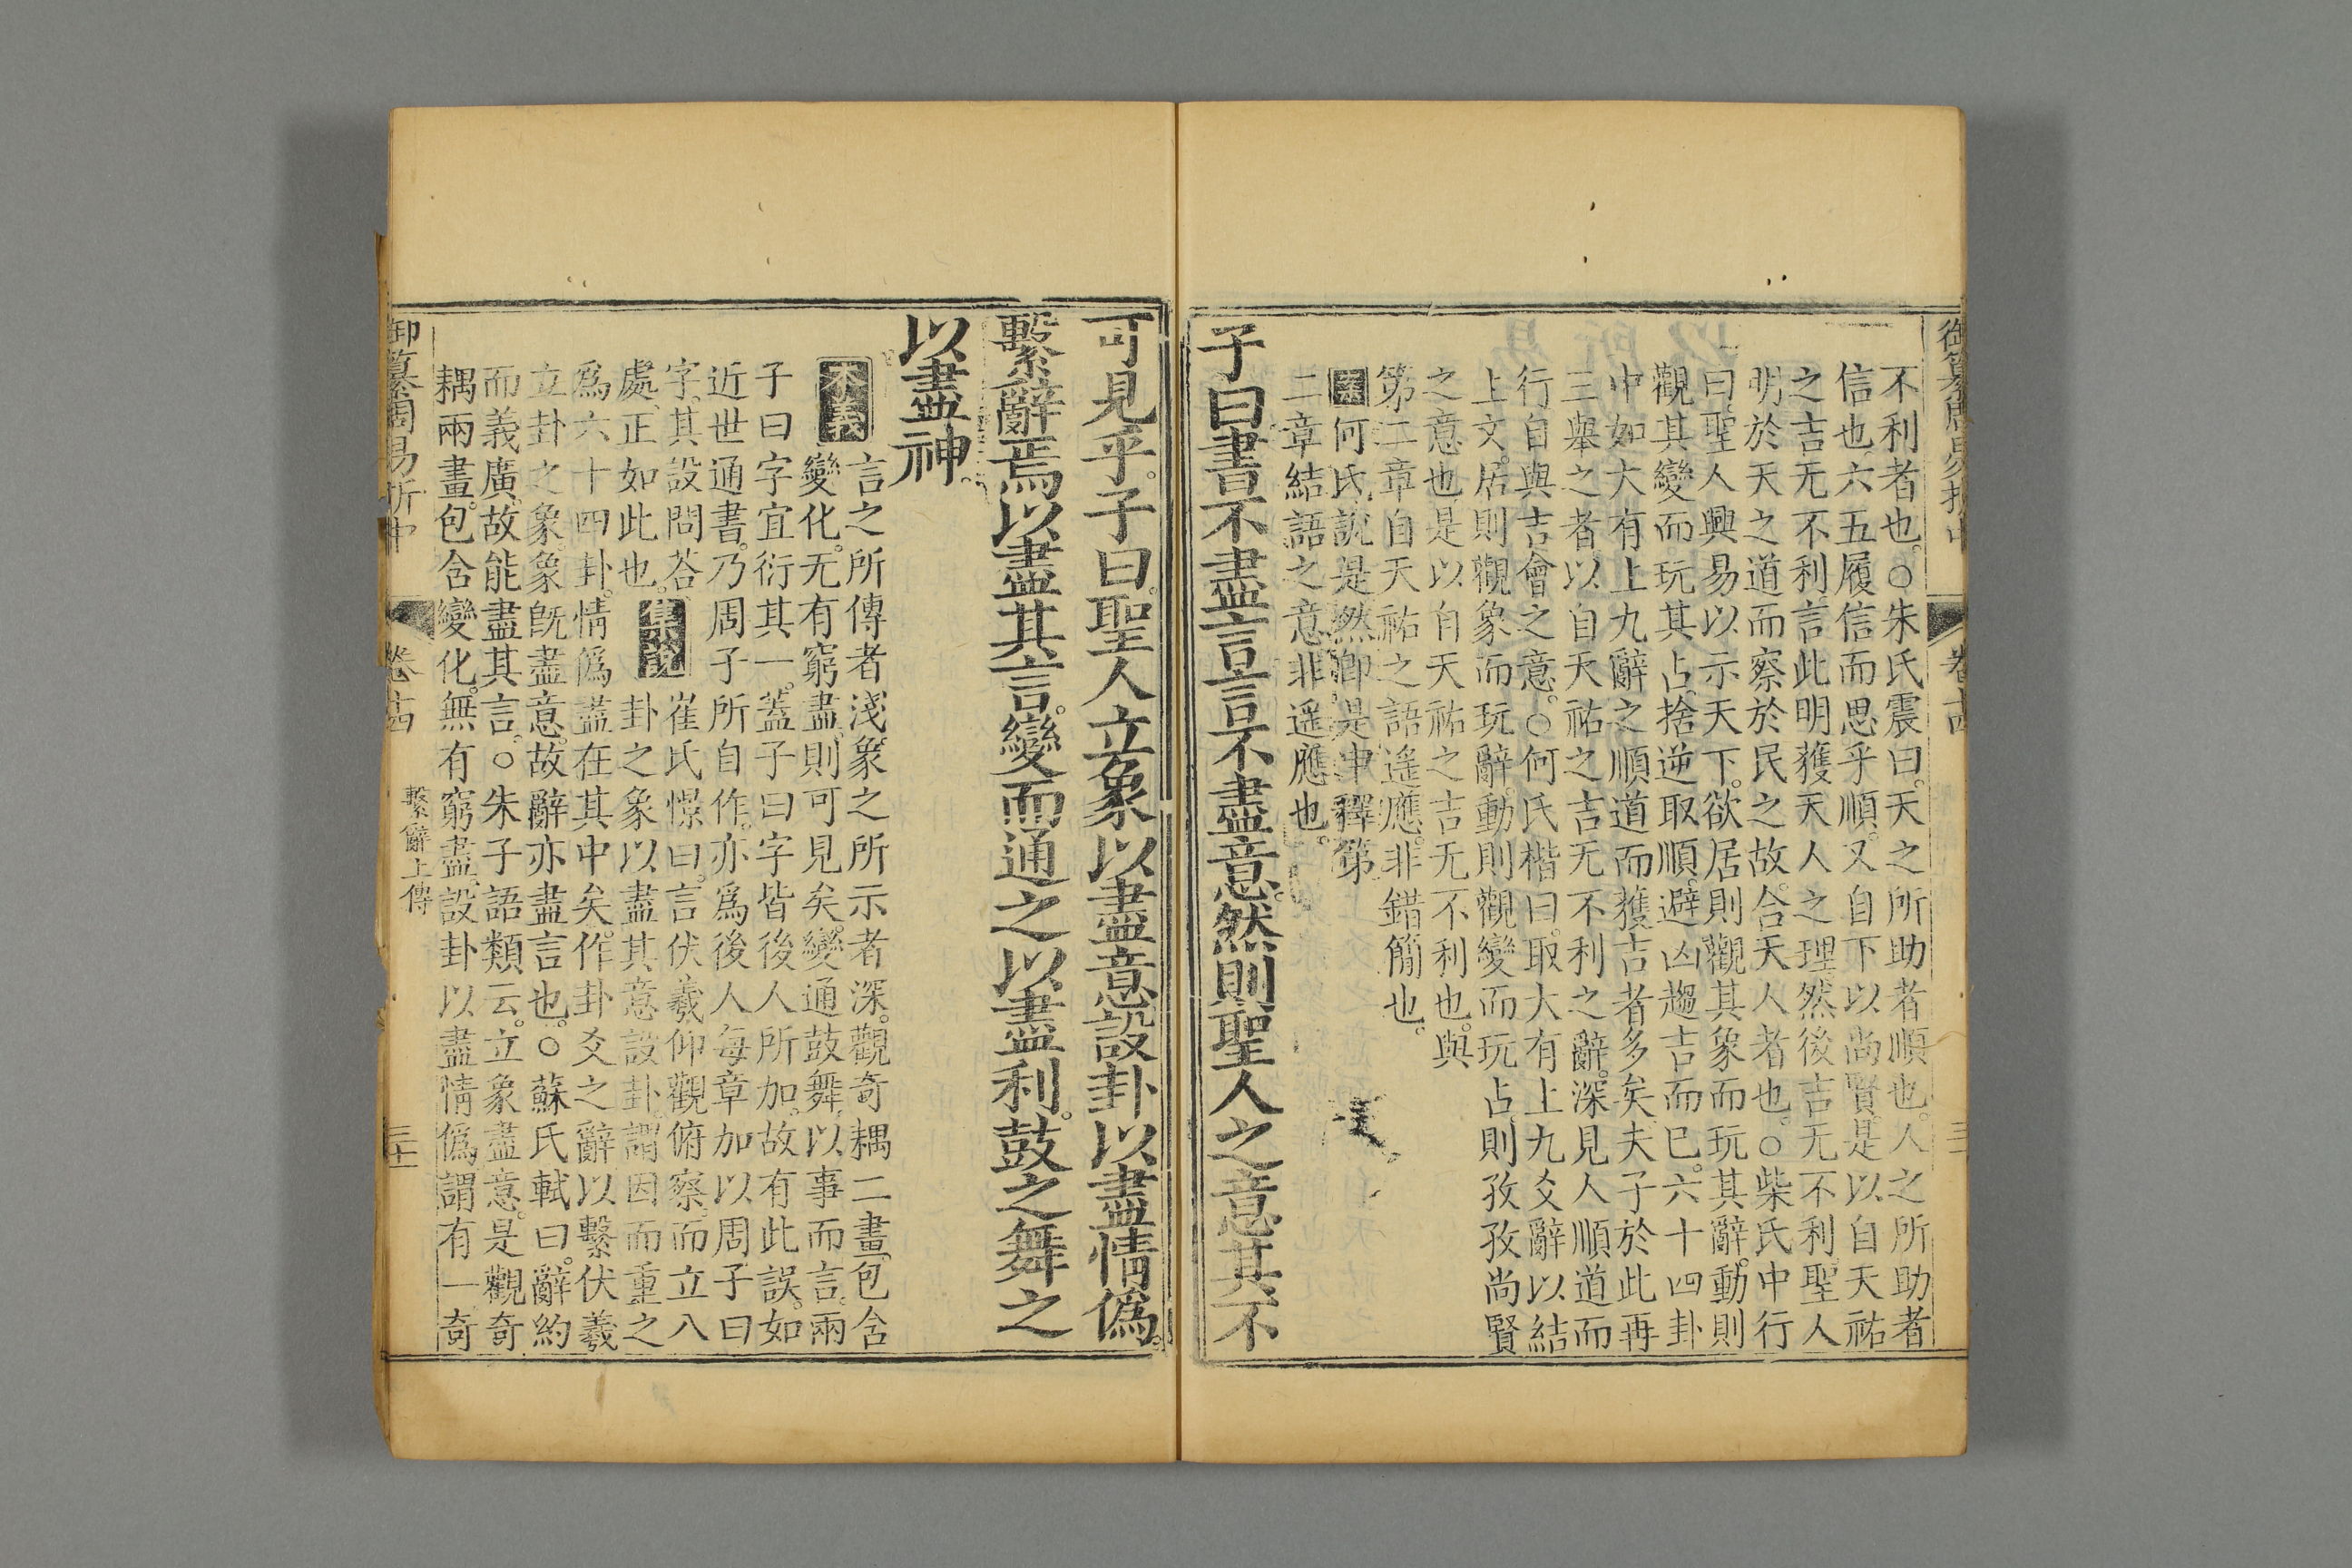 御纂周易折中 卷十四
不利者也。○朱氏震曰。天之所助者順也。人之所助者
信也。六五履信而思乎順。又自下以尚賢。是以自天祐
之吉无不利。言此明獲天人之理。然後吉无不利。聖人
明於天之道而察於民之故。合天人者也。○柴氏中行
曰。聖人興易以示天下。欲居則觀其象而玩其辭。動則
觀其變而玩其占。捨逆取順。避凶趨吉而已。六十四卦
中如大有上九辭之順道而獲吉者多矣。夫子於此再
三舉之者。以自天祐之吉无不利之辭。深見人順道而
行自與吉會之意。○何氏楷曰。取大有上九爻辭以結
上文。居則觀象而玩辭。動則觀變而玩占。則孜孜尚賢
之意也。是以自天祐之吉无不利也。與
第二章自天祐之語遙應。非錯簡也。
案何氏說是。然即是申釋第
二章結語之意。非遙應也。
子曰書不盡言言不盡意。然則聖人之意其不
可見乎。子曰。聖人立象以盡意設卦以盡情偽。
繫辭焉以盡其言。變而通之以盡利。鼓之舞之
以盡神。
本義 言之所傳者淺。象之所示者深。觀奇耦二畫。包含
變化。无有窮盡。則可見矣。變通鼓舞。以事而言。兩
子曰字宜衍其一。蓋子曰字皆後人所加。故有此誤。如
近世通書。乃周子所自作。亦爲後人每章加以周子曰
字。其設問荅
處。正如此也。 集說 崔氏憬曰。言伏羲仰觀俯察。而立八
卦之象以盡其意。設卦。謂因而重之
爲六十四卦。情偽盡在其中矣。作卦爻之辭以繫伏羲
立卦之象。象既盡意。故辭亦盡言也。○蘇氏軾曰。辭約
而義廣。故能盡其言。○朱子語類云。立象盡意。是觀奇
耦兩畫。包含變化。無有窮盡。設卦以盡情偽。謂有一奇
御纂周易折中 卷十四 繫辭上傳 三十一